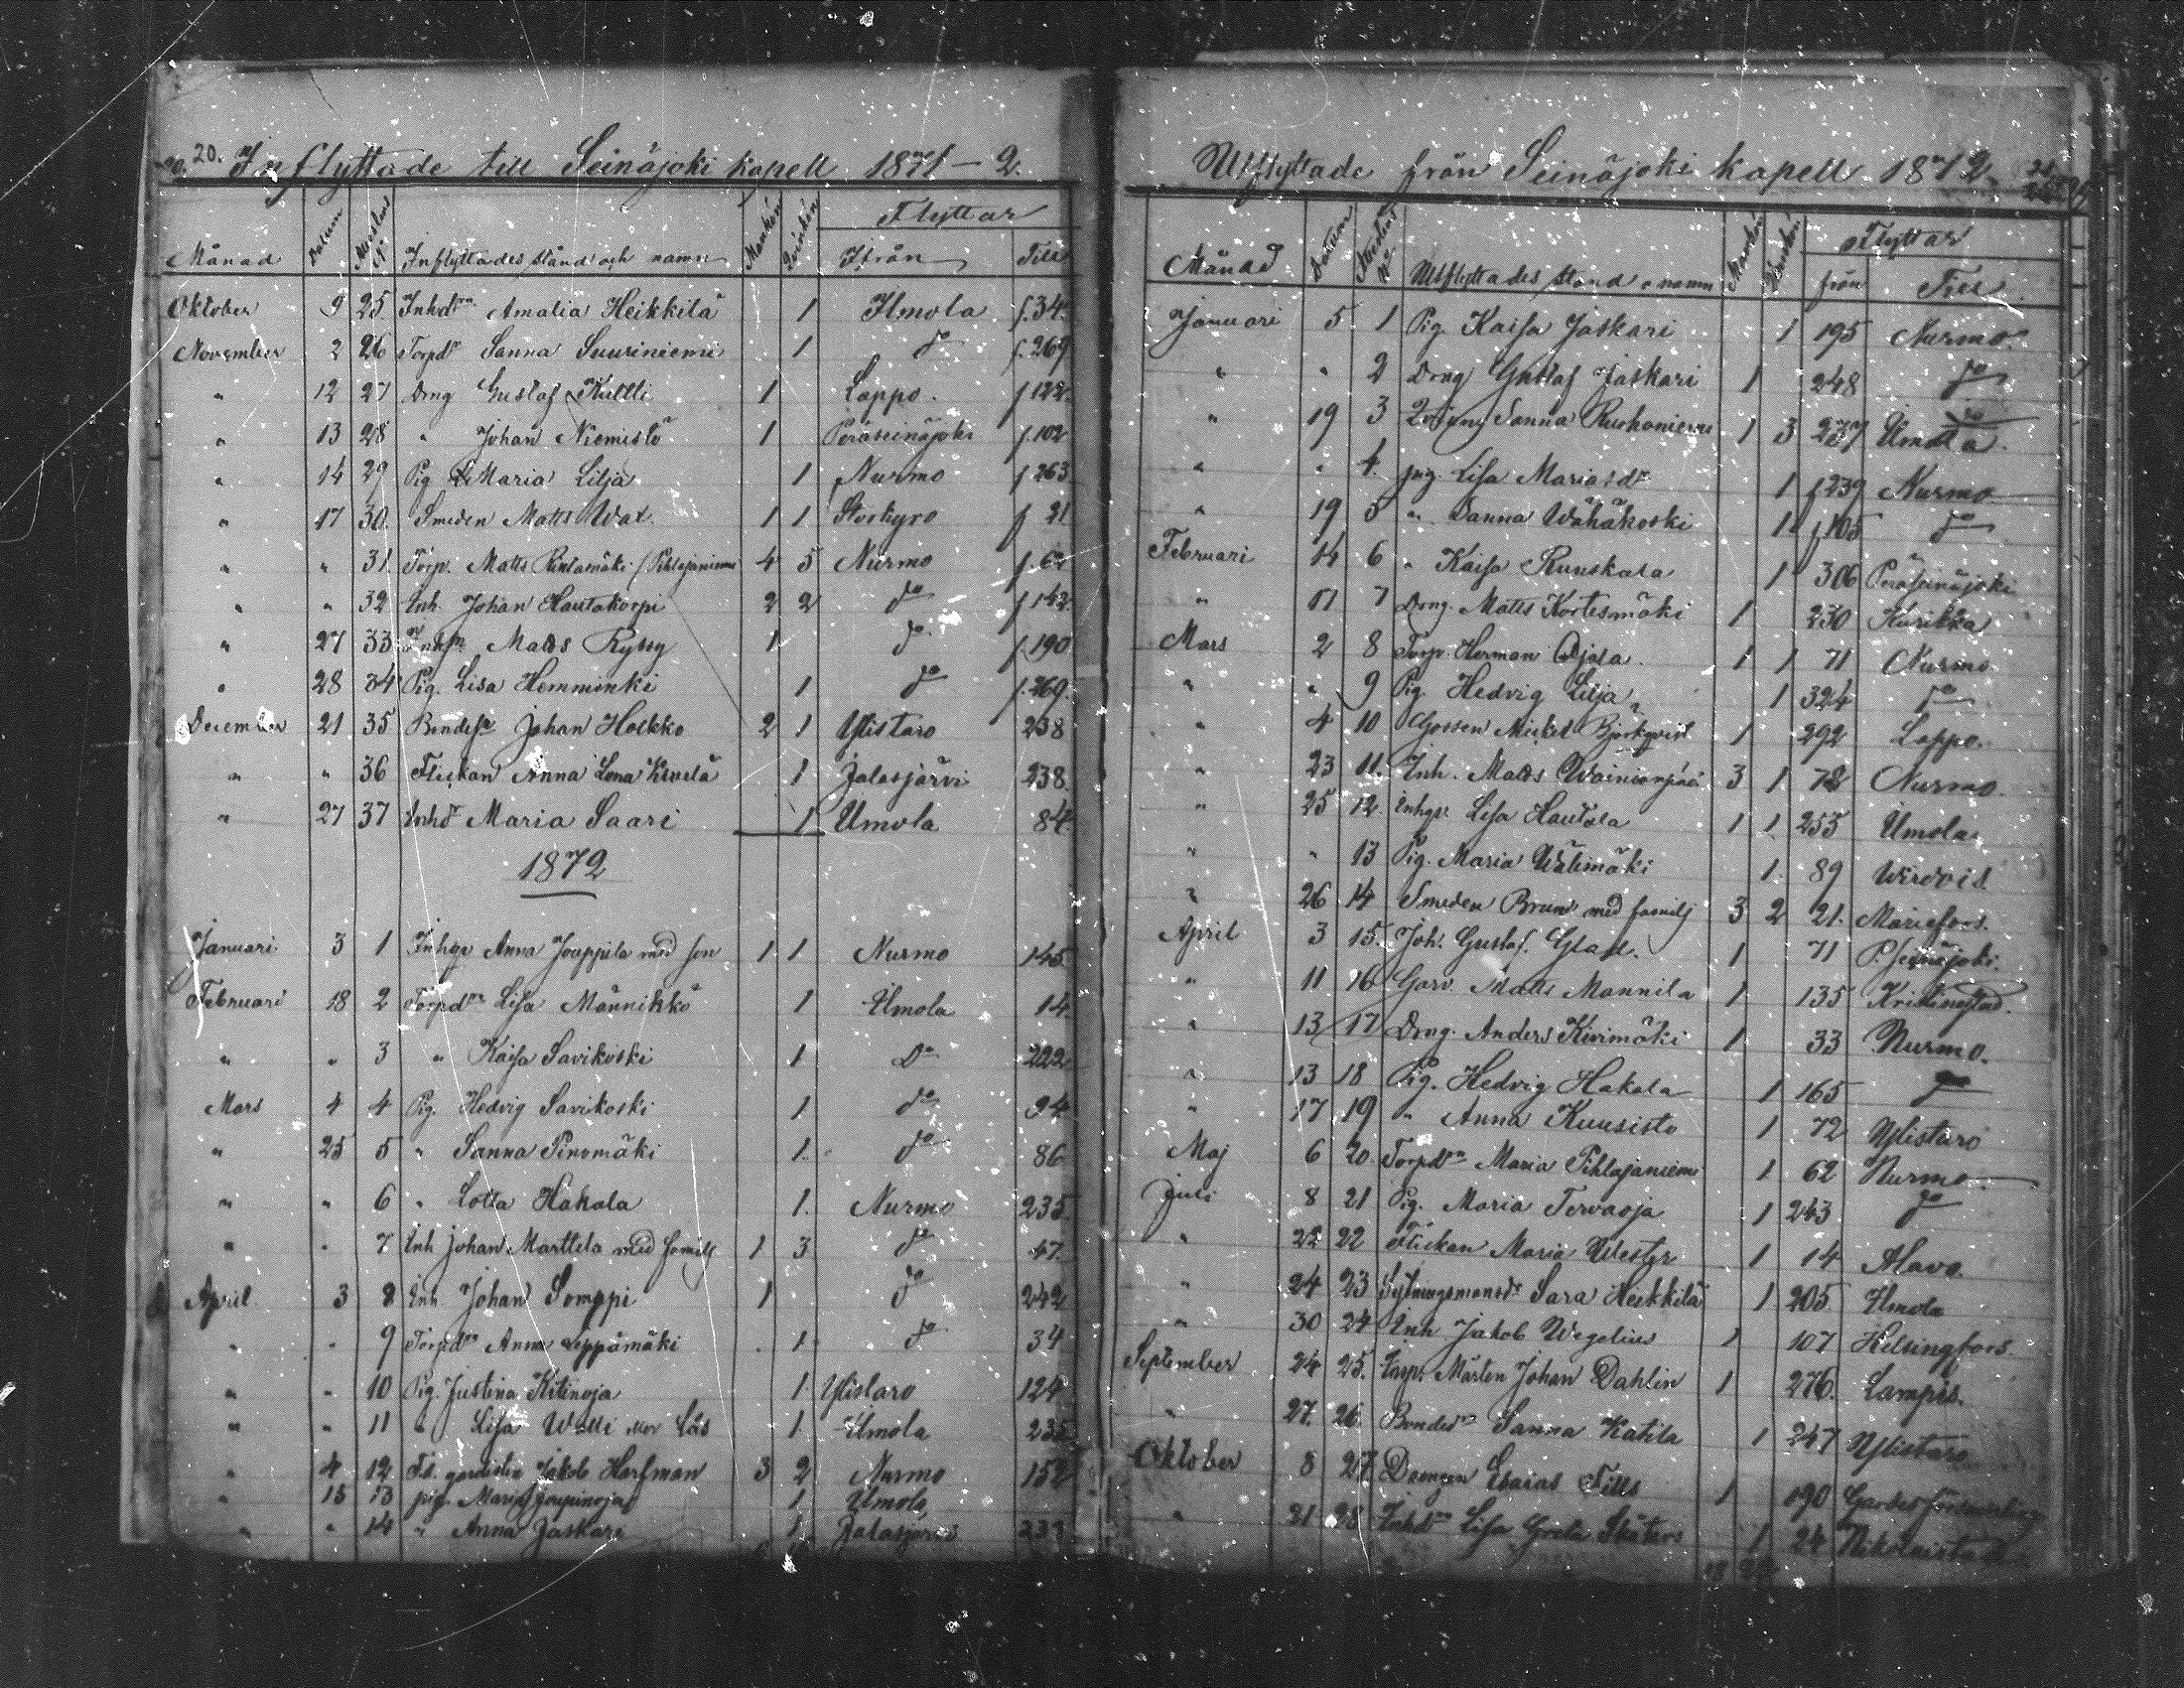 20. Inflyttade till Seinäjoki kapell 1871-2.
Månad Datum Attestens N° Inflyttades stånd och namn Mankön Qvinkön Flyttar Ifrån Till
Oktober 9 25 Inhdtr Amalia Heikkilä 1 Ilmola f. 34.
November 2 26 Torpdr Sanna Suuriniemi 1 do f. 269
" 12 27 Drng Gustaf Kultti 1 Lappo. f 122.
" 13 28 " Johan Niemistö 1 Peräseinäjoki f. 102
" 14 29 Pig Maria Lilja 1 Nurmo f 263
" 17 30. Smeden Matts Wat. 1 1 Storkyro f 21
" " 31. Torp. Matts Rintamäki / Pihlajaniemi 4 5 Nurmo f. 62
" " 32 Inh. Johan Hautakorpi 2 2 do f 142
" 27 33 Matts Ryssy 1 do f. 190
" 28 34 Pig. Lisa Hemminki 1 do f. 269.
December 21 35 Bondes Johan Holkko 2 1 Ylistaro 238
" " 36 Flickan Anna Lena 1 Jalasjärvi 238.
" 27 37 Inhdr Maria Saari 1 Ilmola 84.
1872
Januari 3 1 Inhge Anna Jouppila med son 1 1 Nurmo 145
Februari 18 2 Torpdtr Lisa Männikkö 1 Ilmola 14.
" " 3 " Kaisa Savikoski 1 Do 222
Mars 4 4 Pig. Hedvig Savikoski 1 do 94
" 25 5 " Sanna Pinomäki 1. do 86
" " 6 " Lotta Hakala 1. Nurmo 235.
" " 7 Inh Johan Marttila med familj 1 3 do 47.
April 3 8 Inh Johan Somppi 1 do 242
" " 9 Torpdtr Anna Leppämäki 1 do 34
" " 10 Pig. Justina Kitinoja 1 Ylistaro 124
" " 11 " Lisa Wälli 1 Ilmola 235
" 4 12. Fd. gardisten Jakob Harfman 3 2 Nurmo 152
" 15 13 pig. Maria Joupinoja 1 Ilmola
" " 14 " Anna Jaskari 1 Jalasjärvi
Utflyttade från Seinäjoki kapell 1872 21
Månad Datum Attestens N° Utflyttades stånd o namn Mankön Qvinkön Flyttar från Till
Januari 5 1 Pig. Kaisa Jaskari 1 195 Nurmo.
" " 2 Drng Gustaf Jaskari 1 248 do
" 19 3 Sanna Ruohoniemi 1 3 237 Ilmola.
" " 4. pig. Lisa Mariasdr 1 f 239 Nurmo
" 19 5 " Sanna Wähäkoski 1 f 105 do
Februari 14 6 " Kaisa Ruuskala 1 306 Peräseinäjoki
" 17 7 Drng. Matts Kortesmäki 1 230 Kurikka
Mars 2 8 Torp. Herman Ojala. 1 1 71 Nurmo
" " 9 Pig. Hedvig Lilja 1 324 do
" 4 10 Gossen Mickel Björkqvist 1 292 Lappo.
" 23 11. Inh. Matts Wainionpää 3 1 72 Nurmo.
" 25 12. Inhge Lisa Hautala 1 1 255 Ilmola
" " 13 Pig. Maria Wälimäki 1. 89 Wirdois
" 26 14 Smeden Brun med familj 3 2 21. Mariefors.
April 3 15. Joh. Gustaf Glad. 1 71 P. Seinäjoki.
" 11 16 Garv. Matts Mannila 1 135 Kristinestad.
" 13 17 Drng. Anders Kivimäki 1 33 Nurmo.
" 13 18 Pig. Hedvig Hakala 1 165 do
" 17 19 " Anna Kuusisto 1 72 Ylistaro
Maj 6 20. Torpdtr Maria Pihlajaniemi 1 62 Nurmo
Juli 8 21 Pig. Maria Tervaoja 1 243 do
" 22 22 Flickan Maria 1 14 Alavo.
" 24 23 Sytningsmansdr Sara Heikkilä 1 205 Ilmola
" 30 24 Inh Jakob Wegelius 1 107 Helsingfors
September 24 25. Insp. Mårten Johan Dahlin 1 276. Lampis.
" 27. 26. Bondedr Sanna Katila 1 247 Ylistaro
Oktober 8 27 Drengen Esaias Tills 1 190
" 21 28 Inhdtr Lisa Greta 1 24 Nikolaistad